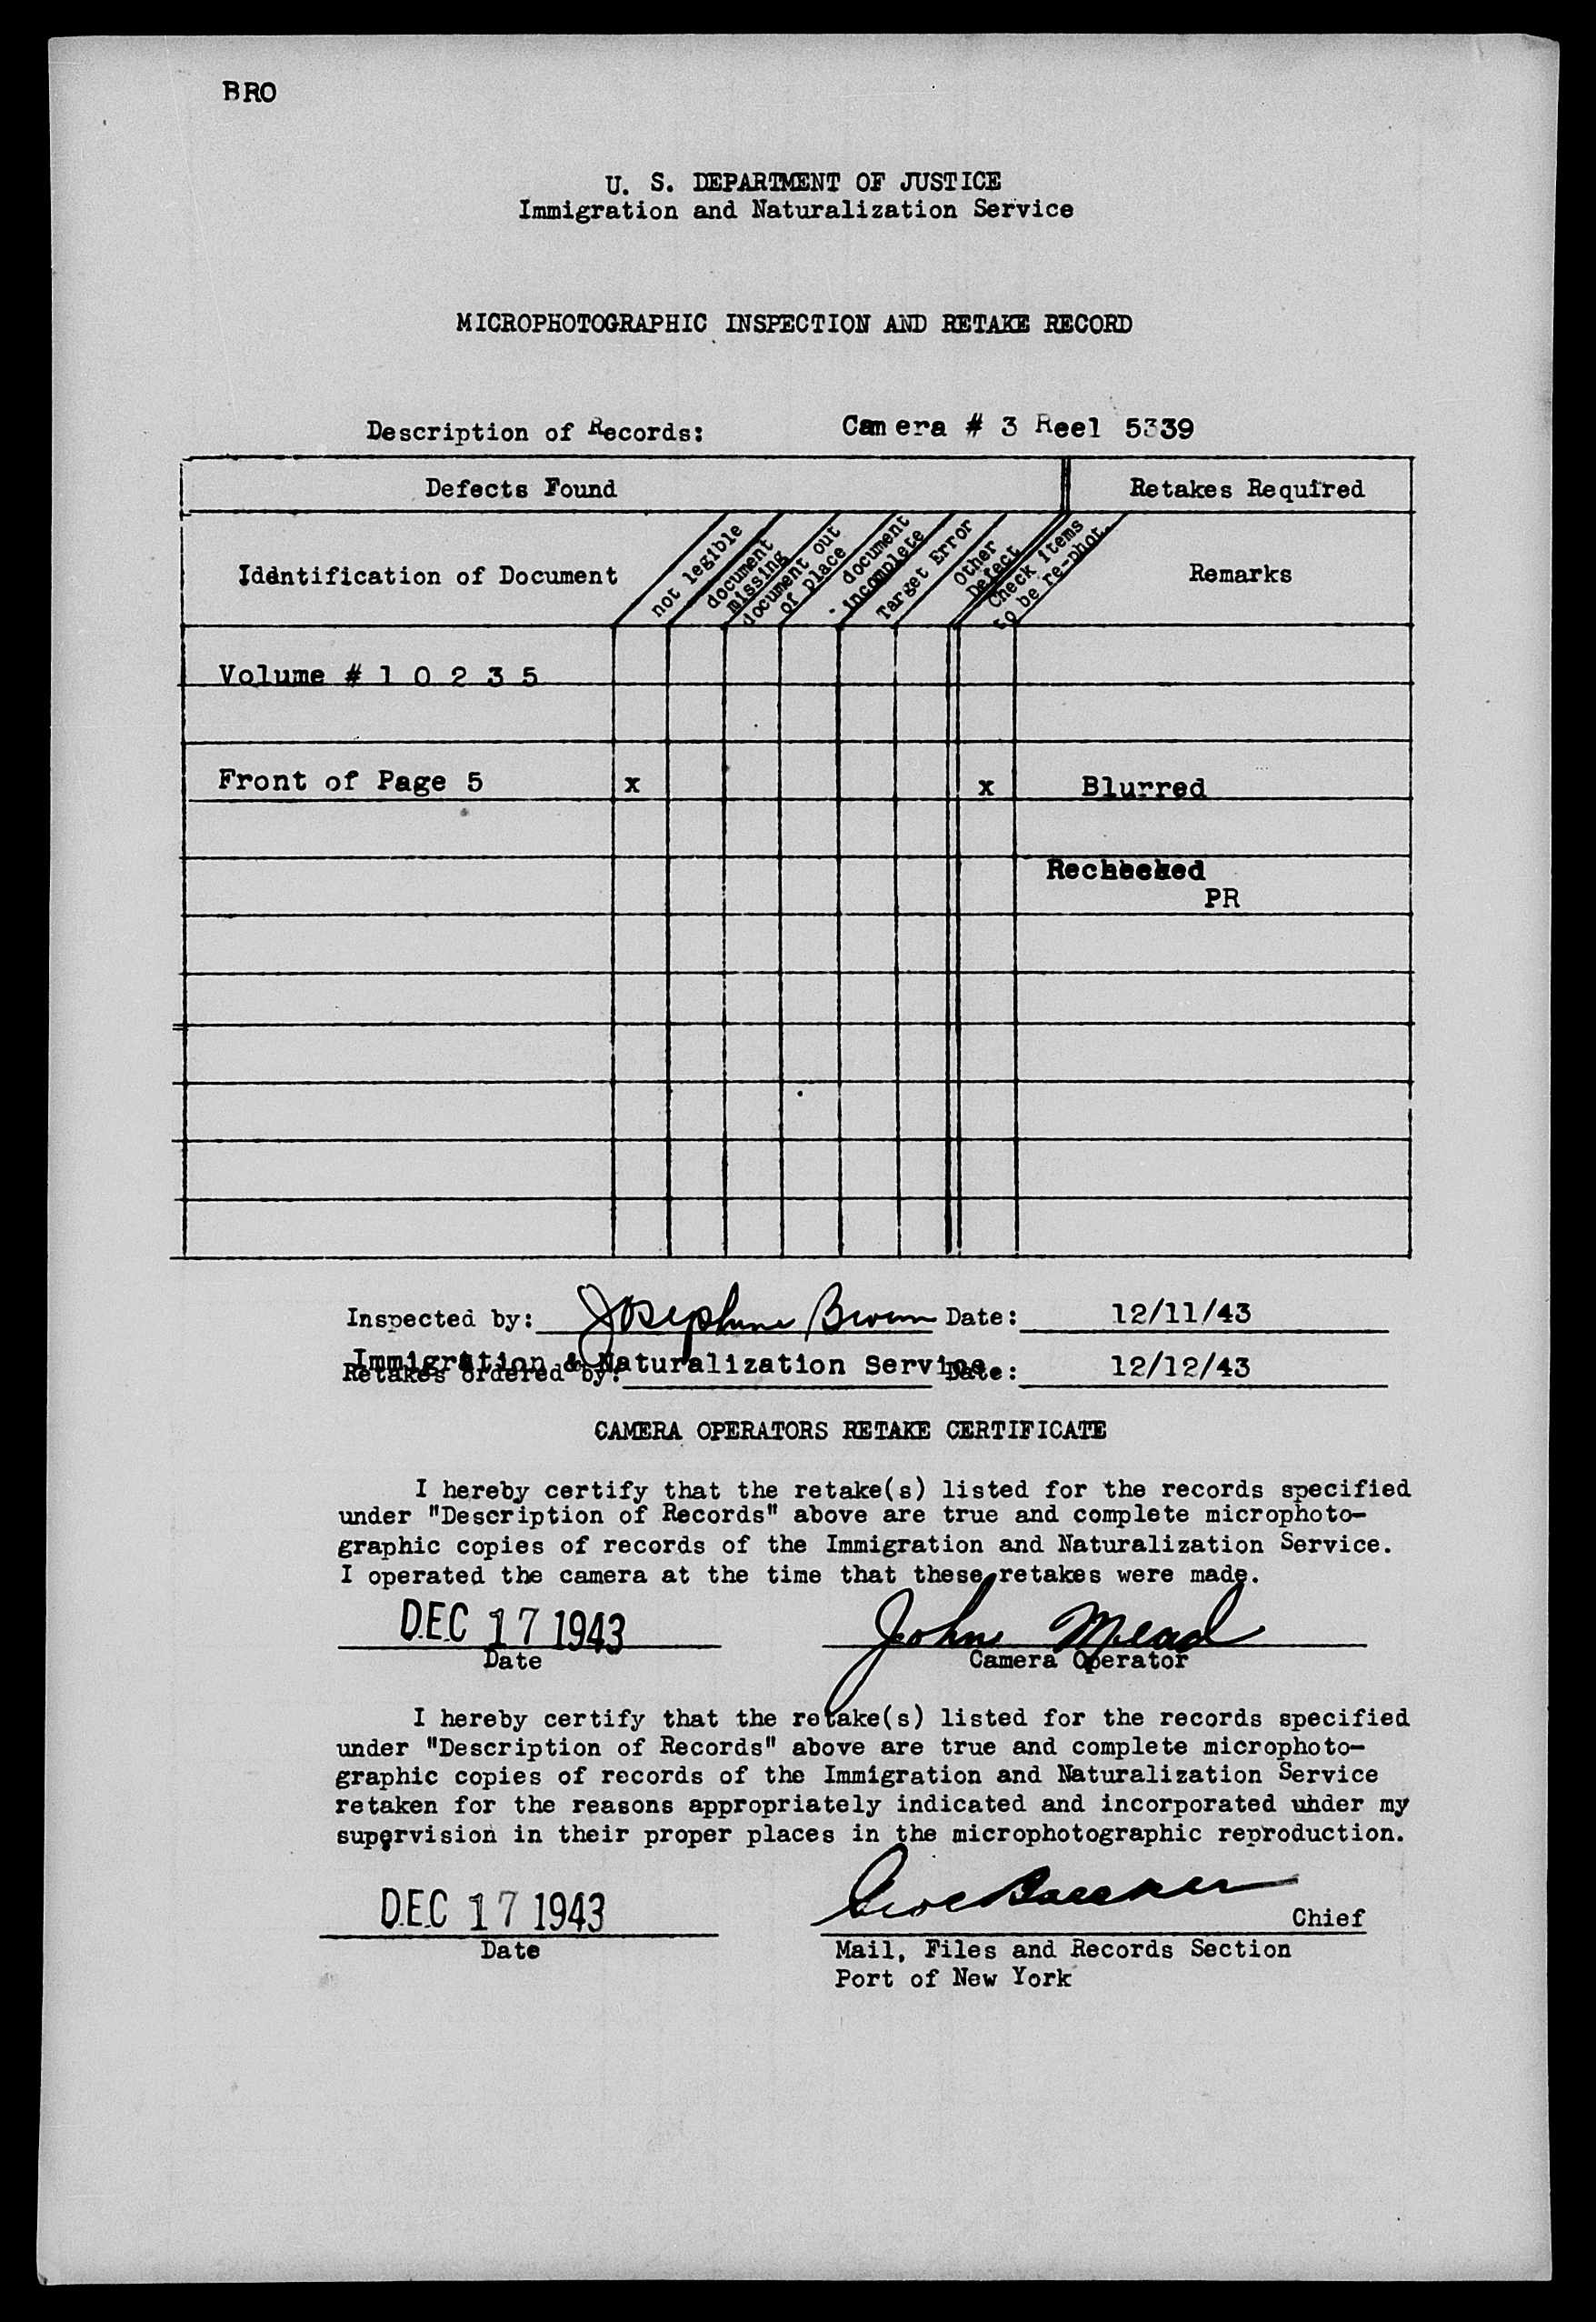 BRO
U. S. DEPARTMENT OF JUSTICE
Immigration and Naturalization Service
MICROPHOTOGRAPHIC INSPECTION AND RETAKE RECORD
Description of Records: Camera # 3 Reel 5339
Defects Found Retakes Required
Identification of Document
not legible
document
missing
document out
of place
document
incomplete
Target Error
Other
Defect
Check items
to be re-phot.
Remarks
Volume # 1 0 2 3 5
Front of Page 5 x x Blurred
Rechecked
PR
Inspected by: Josephine Brown Date: 12/11/43
Immigration & Naturalization Service
Retakes ordered by: Date: 12/12/43
CAMERA OPERATORS RETAKE CERTIFICATE
I hereby certify that the retake(s) listed for the records specified
under "Description of Records" above are true and complete microphoto-
graphic copies of records of the Immigration and Naturalization Service.
I operated the camera at the time that these retakes were made.
DEC 17 1943 John Mead
Date Camera Operator
I hereby certify that the retake(s) listed for the records specified
under "Description of Records" above are true and complete microphoto-
graphic copies of records of the Immigration and Naturalization Service
retaken for the reasons appropriately indicated and incorporated under my
supervision in their proper places in the microphotographic reproduction.
DEC 17 1943 Chief
Date Mail, Files and Records Section
Port of New York